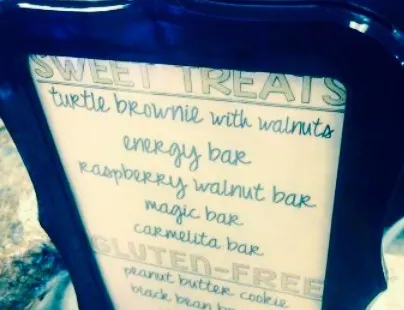 SWEET TREATS
turtle brownie with walnuts
energy bar
raspberry walnut bar
magic bar
carmelita bar
GLUTEN-FREE
peanut butter cookie
black bean